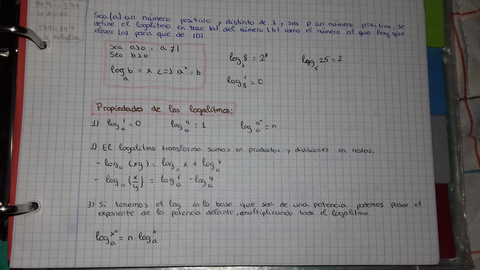 Sea (a) un número positivo y distinto de 1, y sea b un número positivo, se
define el logaritmo en base (a) del número (b) como el número al que hay que
elevar (a) para que de (b)
Sea a>0, a≠1
Sea b>0
log_a b = x <=> a^x = b
log_2 8 = 2^3
log_5 25 = 2
log_8 1 = 0
Propiedades de los logalitmos:
1) log_a 1 = 0 log_a a = 1 log_a a^n = n
2) El logalitmo transforma sumas en productos y divisiones en restas.
- log_a (xy) = log_a x + log_a y
- log_a (x/y) = log_a x - log_a y
3) Si tenemos el log en la base que sea de una potencia podemos pasar el
exponente de la potencia delante, multiplicando todo el logalitmo
log_a x^n = n · log_a x